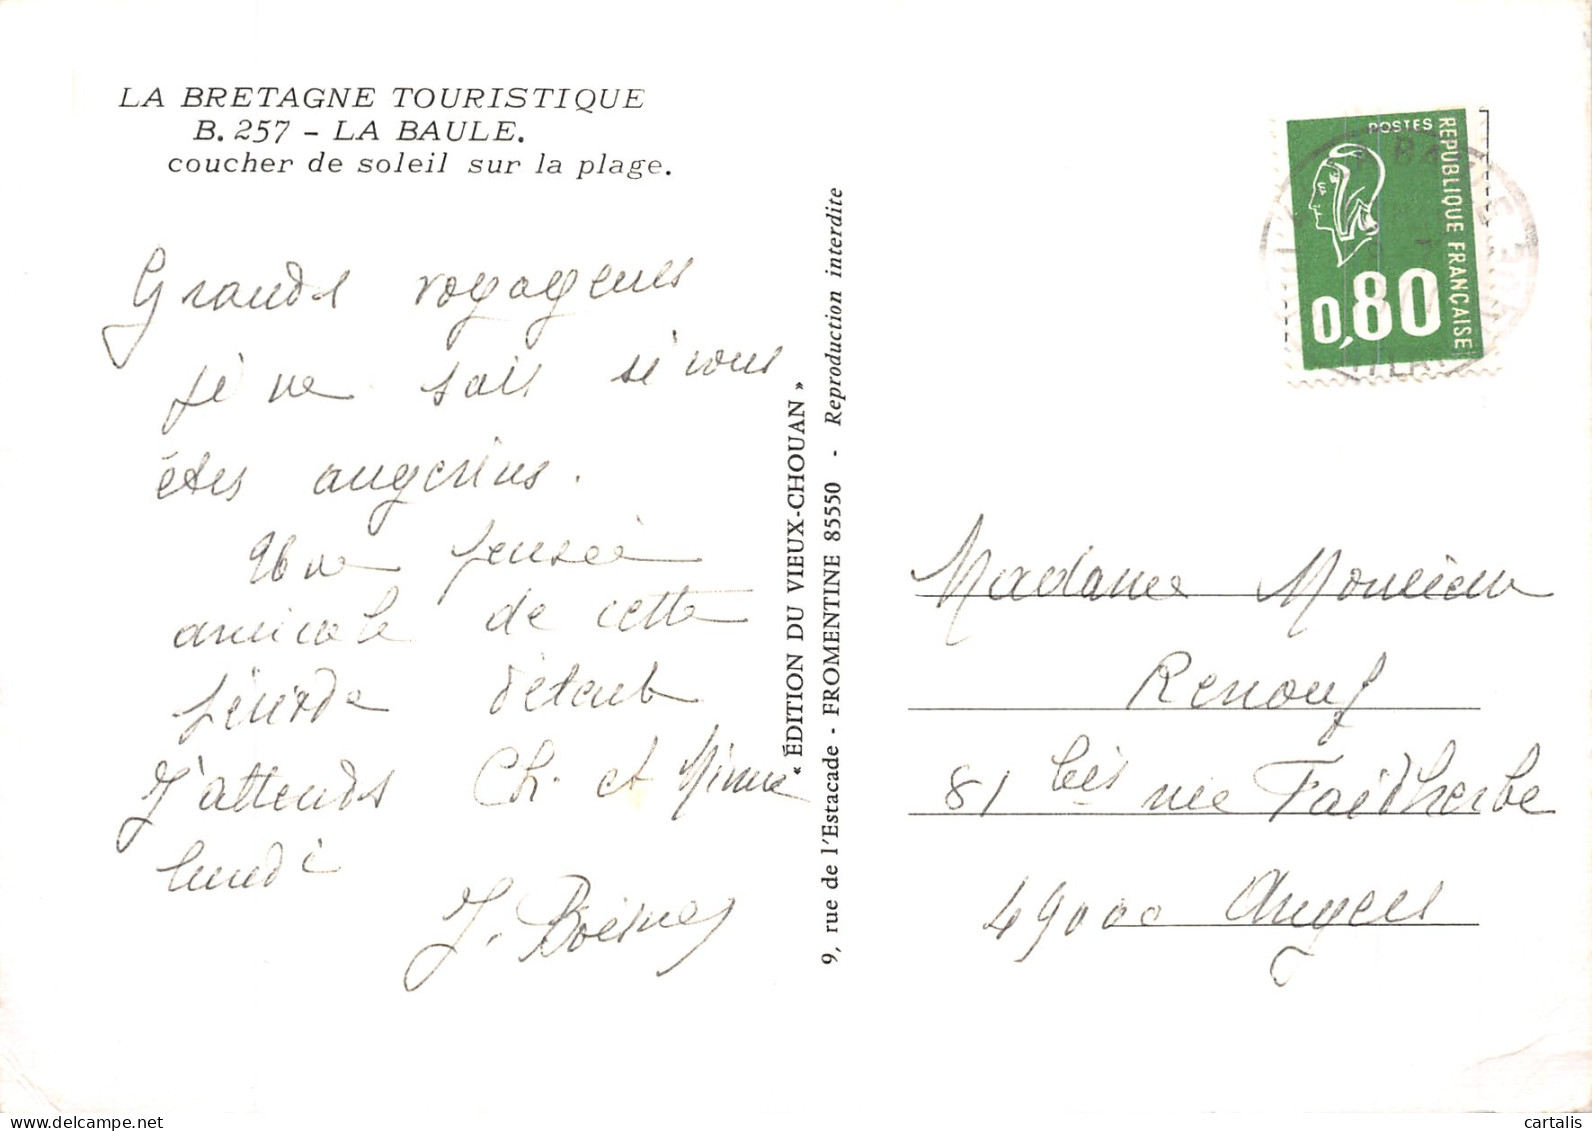 LA BRETAGNE TOURISTIQUE
B. 257 - LA BAULE.
coucher de soleil sur la plage.
Grands voyageurs
je ne sais si vous
êtes angevins.
Une pensée
amicale de cette
période détente
J'attends Ch. et Mimie
lundi
J. Boismey
« ÉDITION DU VIEUX-CHOUAN »
9, rue de l'Estacade - FROMENTINE 85550 - Reproduction interdite
POSTES
REPUBLIQUE FRANÇAISE
0,80
Madame Monsieur
Renouf
81 bis rue Faidherbe
49000 Angers
cartalis